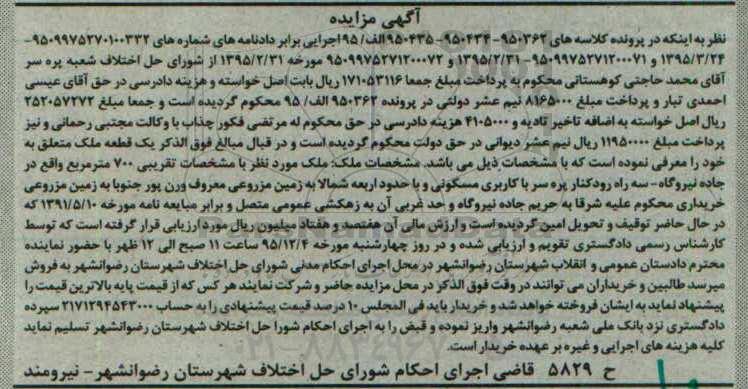 آگهی مزایده
نظر به اینکه در پرونده کلاسه های ۹۵۰۳۶۲- ۹۵۰۴۳۴- ۹۵۰۴۳۵الف/ ۹۵ اجرایی برابر دادنامه های شماره های ۹۵۰۹۹۷۵۲۷۰۱۰۰۳۳۲-
۱۳۹۵/۳/۲۴ و ۹۵۰۹۹۷۵۲۷۱۲۰۰۰۷۱- ۱۳۹۵/۲/۳۱ و ۹۵۰۹۹۷۵۲۷۱۲۰۰۰۷۲ مورخه ۱۳۹۵/۲/۳۱ از شورای حل اختلاف شعبه پره سر
آقای محمد حاجتی کوهستانی محکوم به پرداخت مبلغ جمعا ۱۷۱۰۵۳۱۱۶ ریال بابت اصل خواسته و هزینه دادرسی در حق آقای عیسی
احمدی تبار و پرداخت مبلغ ۸۱۶۵۰۰۰ نیم عشر دولتی در پرونده ۹۵۰۳۶۲ الف/ ۹۵ محکوم گردیده است و جمعا مبلغ ۲۵۲۰۵۷۲۷۲
ریال اصل خواسته به اضافه تاخیر تادیه و ۴۱۰۵۰۰۰ هزینه دادرسی در حق محکوم له مرتضی فکور جذاب با وکالت مجتبی رحمانی و نیز
پرداخت مبلغ ۱۱۹۵۰۰۰۰ ریال نیم عشر دیوانی در حق دولت محکوم گردیده است و در قبال مبالغ فوق الذکر یک قطعه ملک متعلق به
خود را معرفی نموده است که با مشخصات ذیل می باشد. مشخصات ملک: ملک مورد نظر با مشخصات تقریبی ۷۰۰ مترمربع واقع در
جاده نیروگاه- سه راه رودکنار پره سر با کاربری مسکونی و با حدود اربعه شمالا به زمین مزروعی معروف ورن پور جنوبا به زمین مزروعی
خریداری محکوم علیه شرقا به حریم جاده نیروگاه و حد غربی آن به زهکشی عمومی متصل و برابر مبایعه نامه مورخه ۱۳۹۱/۵/۱۰ که
در حال حاضر توقیف و تحویل امین گردیده است و ارزش مالی آن هفتصد و هفتاد میلیون ریال مورد ارزیابی قرار گرفته است که توسط
کارشناس رسمی دادگستری تقویم و ارزیابی شده و در روز چهارشنبه مورخه ۹۵/۱۲/۴ ساعت ۱۱ صبح الی ۱۲ ظهر با حضور نماینده
محترم دادستان عمومی و انقلاب شهرستان رضوانشهر در محل اجرای احکام مدنی شورای حل اختلاف شهرستان رضوانشهر به فروش
میرسد طالبین و خریداران می توانند در وقت فوق الذکر در محل مزایده حاضر و شرکت نمایند هر کس که از قیمت پایه بالاترین قیمت را
پیشنهاد نماید به ایشان فروخته خواهد شد و خریدار باید فی المجلس ۱۰ درصد قیمت پیشنهادی را به حساب ۲۱۷۱۲۹۴۵۴۳۰۰۰ سپرده
دادگستری نزد بانک ملی شعبه رضوانشهر واریز نموده و قبض را به اجرای احکام شورا حل اختلاف شهرستان رضوانشهر تسلیم نماید
کلیه هزینه های اجرایی و غیره بر عهده خریدار است.
ح ۵۸۲۹ قاضی اجرای احکام شورای حل اختلاف شهرستان رضوانشهر- نیرومند